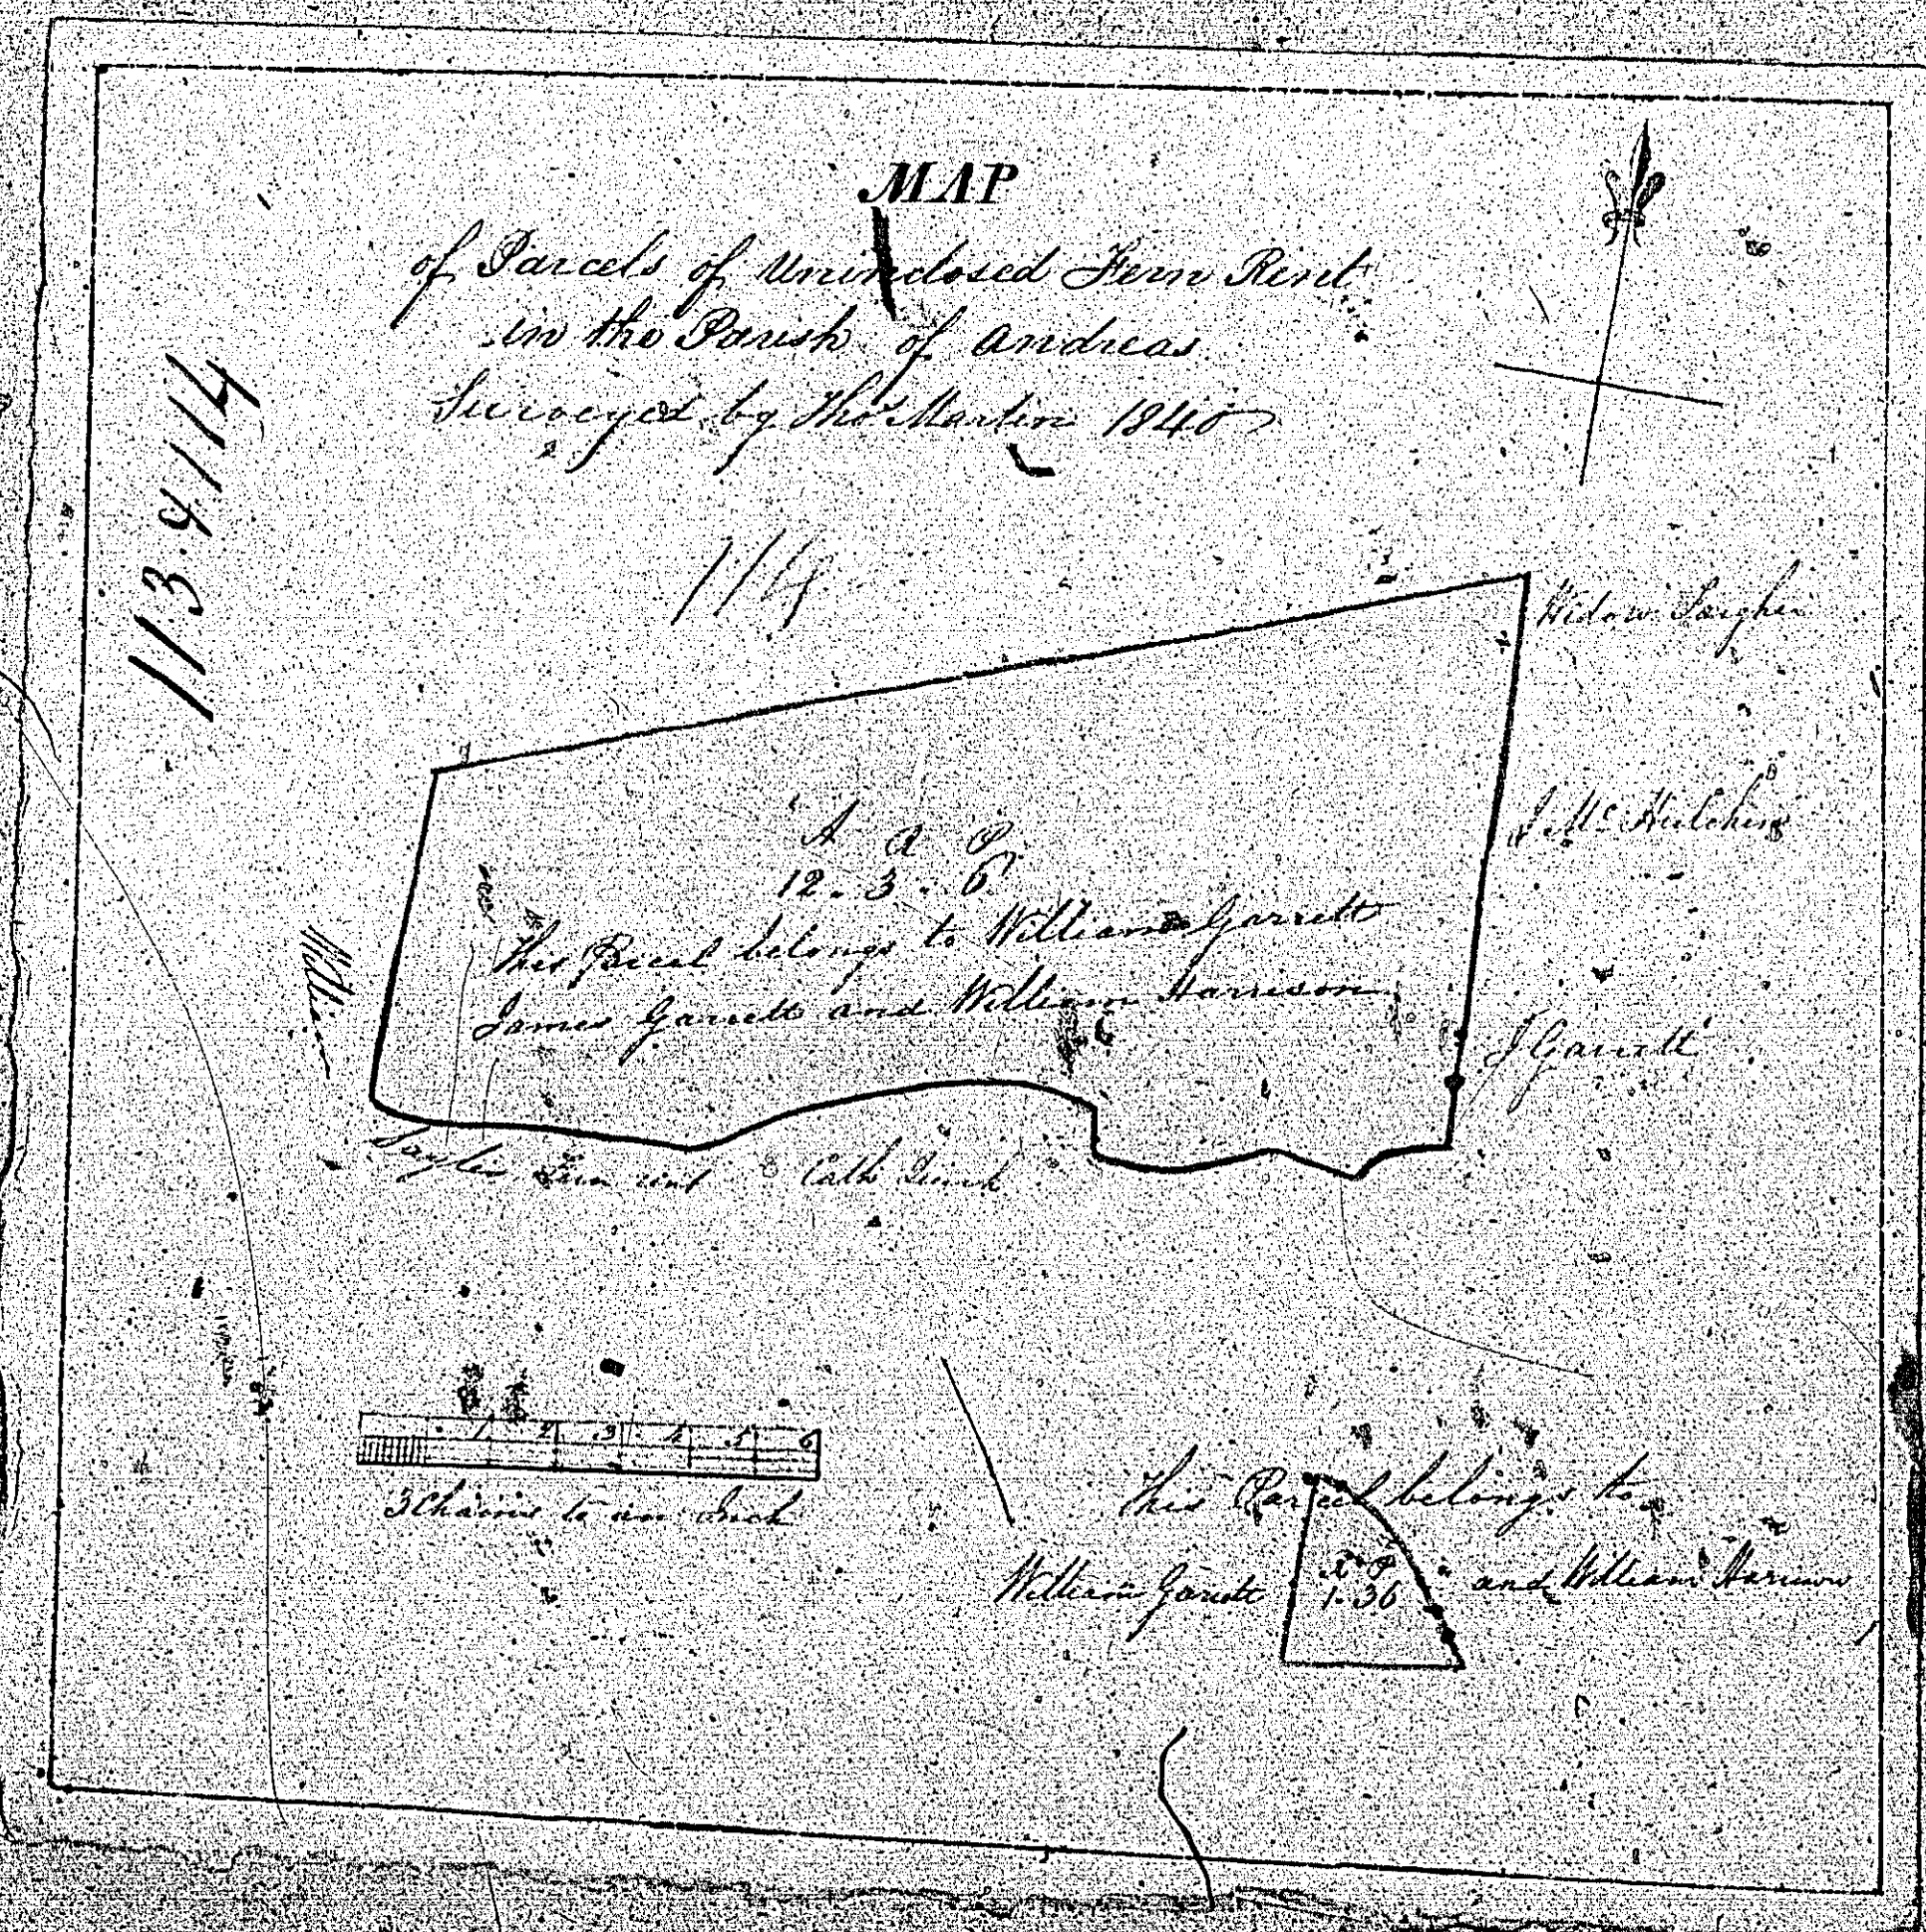 MAP
of Parcels of Uninclosed Fern Rent
in the Parish of Andreas
Surveyed by Thos Martin 1840
113.4.114
Widow
J Mc Hutchin
A R P
12. 3. 6
This Parcel belongs to William Garrett
James Garrett and William Harrison
J Garrett
Fern rent
Cath Quirk
1 2 3 4 5 6
3 Chains to an Inch
This Parcel belongs to
William Garrett
R P
1.36
and William Harrison